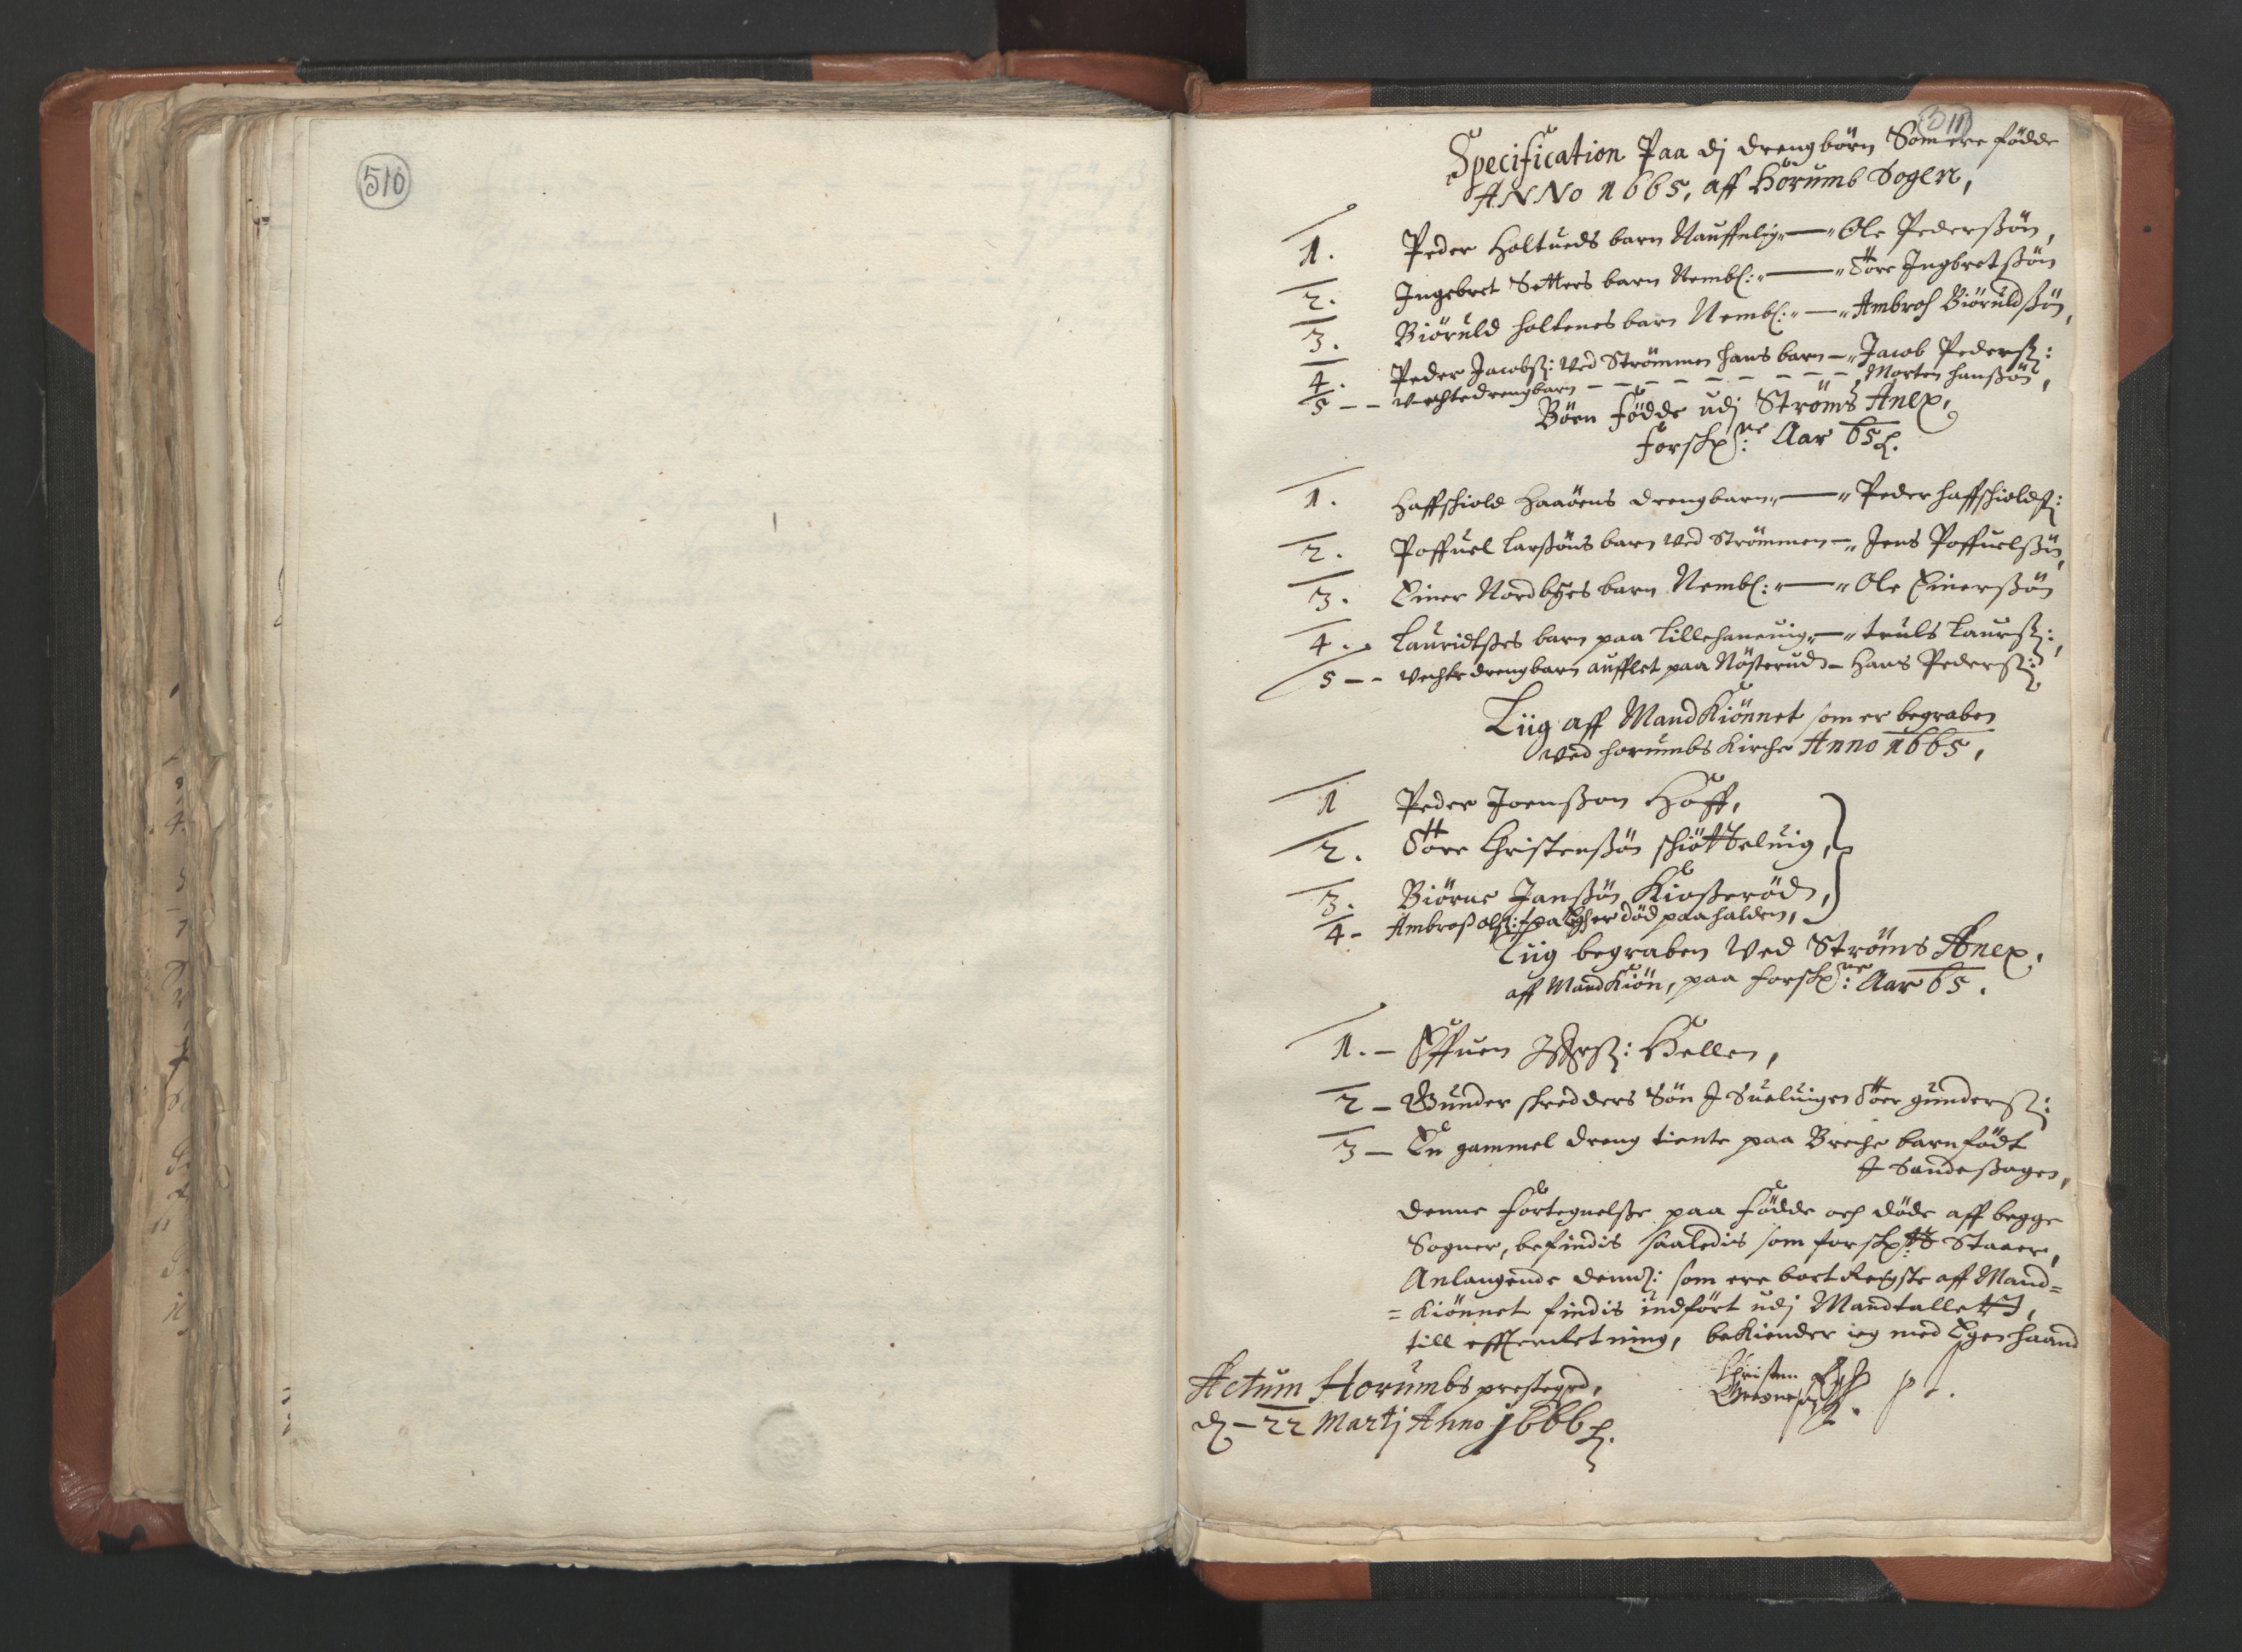 510
511
Specification Paa dj drengbörn Som ere födde
ANNo 1665, aff Hörumb Sogen,
1. Peder Holtueds barn Nauffnlig — Ole Pederßön,
2. Ingebret Setters barn Nembl: — Tore Ingbretßön
3. Biöruld holtenes barn Nembl: — Ambros Biöruldßön,
4. Peder Jacobß: Ved Strömmen hans barn — Jacob Pederß:
5 — vechtedrengbarn — Morten hanßön,
Börn Födde udj Ströms Anex,
forschr:ne Aar 65.
1. Haffschiold Haaöens drengbarn — Peder haffschioldß:
2. Poffuel Larßöns barn Ved Strömmen — Jens Poffuelßön,
3. Einer Nordbÿes barn Nembl: — Ole Einerßön
4. Lauridtßes barn paa Lillehaneuig — truls Laurß:,
5 — Vechtedrengbarn aufflet paa Nösterud — Hans Pederß:
Liig aff MandKiönnet som er begraben
Ved horumbs Kirche Anno 1665,
1 Peder Joenßon Hoff,
2. Tore Christenßön schiötteluig,
3. Biörne Janßön Kioßeröd,
4 — Ambroß olß: er död paa halden,
Liig begraben Ved Ströms Anex,
aff MandKiön, paa forschr:ne Aar 65.
1. — Effuen Hellen,
2 — Gunder schredders Sön I Sueluigen Toer gunderß:
3 — En gammel dreng tiente paa Breche barnfödt
I Sandeßogen,
Denne Fortegnelße paa Födde och döde aff begge
Sogner, befindis saaledis som forschr: Staaer,
Anlangende dennß: som ere bort Reÿste aff Mand=
=Kiönnet findis indfört udj Mandtallett,
till effterretning, beKiender ieg med Egen haand
Actum Horumbs prestegrd,
d — 22 Martj Anno 1666.
Christen